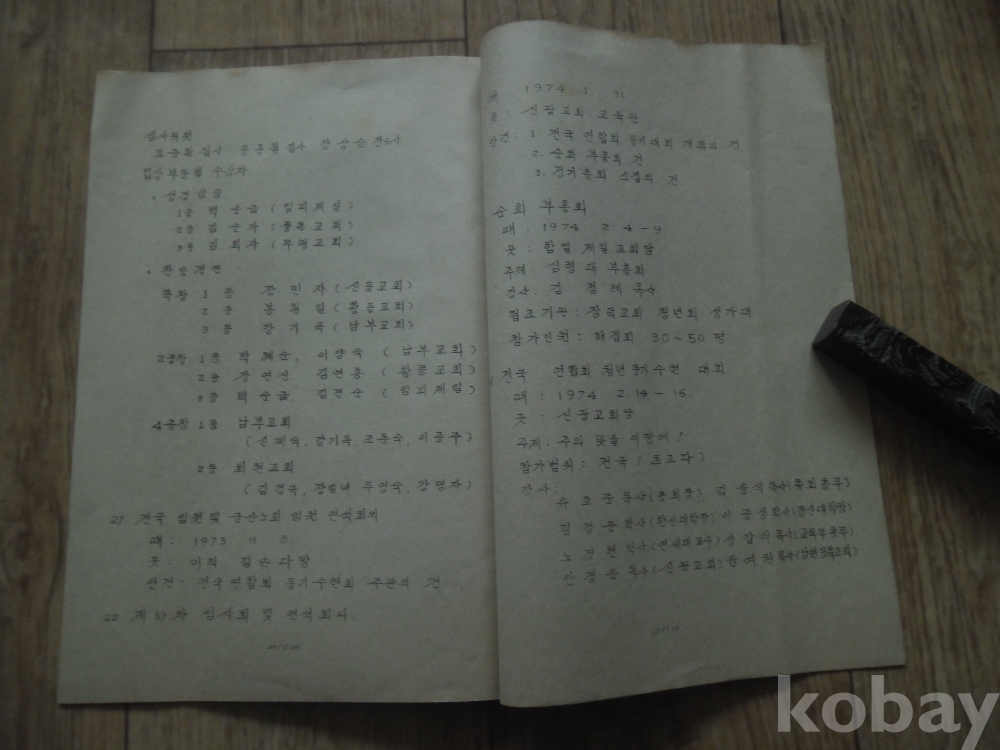 심사위원
입상부문별 수상자
· 성경암송
1등 백순금 (임피제일)
2등 김순자 (중동교회)
3등 김희자 (두현교회)
· 찬양경연
독창 1등 장민자 (신등교회)
2등 봉원일 (황등교회)
3등 강기옥 (남부교회)
2중창 1등 박 순, 이양숙 (남부교회)
2등 장연신 김연홍 (황등교회)
3등 백순금 김정순 (임피제일)
4중창 1등 남부교회
(신 숙, 강기옥, 조춘숙, 이공주)
2등 교회
(김경옥, 두명숙, 강명자)
21 전국 임원 및 군산노회 임원 연석회의
때: 1973 11 3
곳: 이리 다방
안건: 전국연합회 동기수련회 주관의 건
22 제10차 임사회 및 연석회의
때: 1974. 1 31
곳: 신광교회 교육관
안건: 1. 전국 연합회 동기대회 개최의 건
2. 순회 부흥의 건
3. 정기총회 소집의 건
순회 부흥회
때: 1974. 2 4-9
곳: 함열 제일교회당
주제: 심령 대 부흥회
강사: 김 목사
협조기관: 장덕교회 청년회 성가대
참가인원: 매집회 30~50명
전국 연합회 청년동기수련 대회
때: 1974. 2. 14-15.
곳: 신광교회당
주제: 주의 뜻을 이땅에!
참가범위: 전국 (초교파)
강사:
유호준목사(총회장) 김 식목사( 총무)
김 목사(한신대학장) 이종성목사(장신대학장)
노정현 박사(연세대교수) 성갑식 목사(교육부총무)
안경운목사(신광교회) 윤여권목사(남원동북교회)
kobay